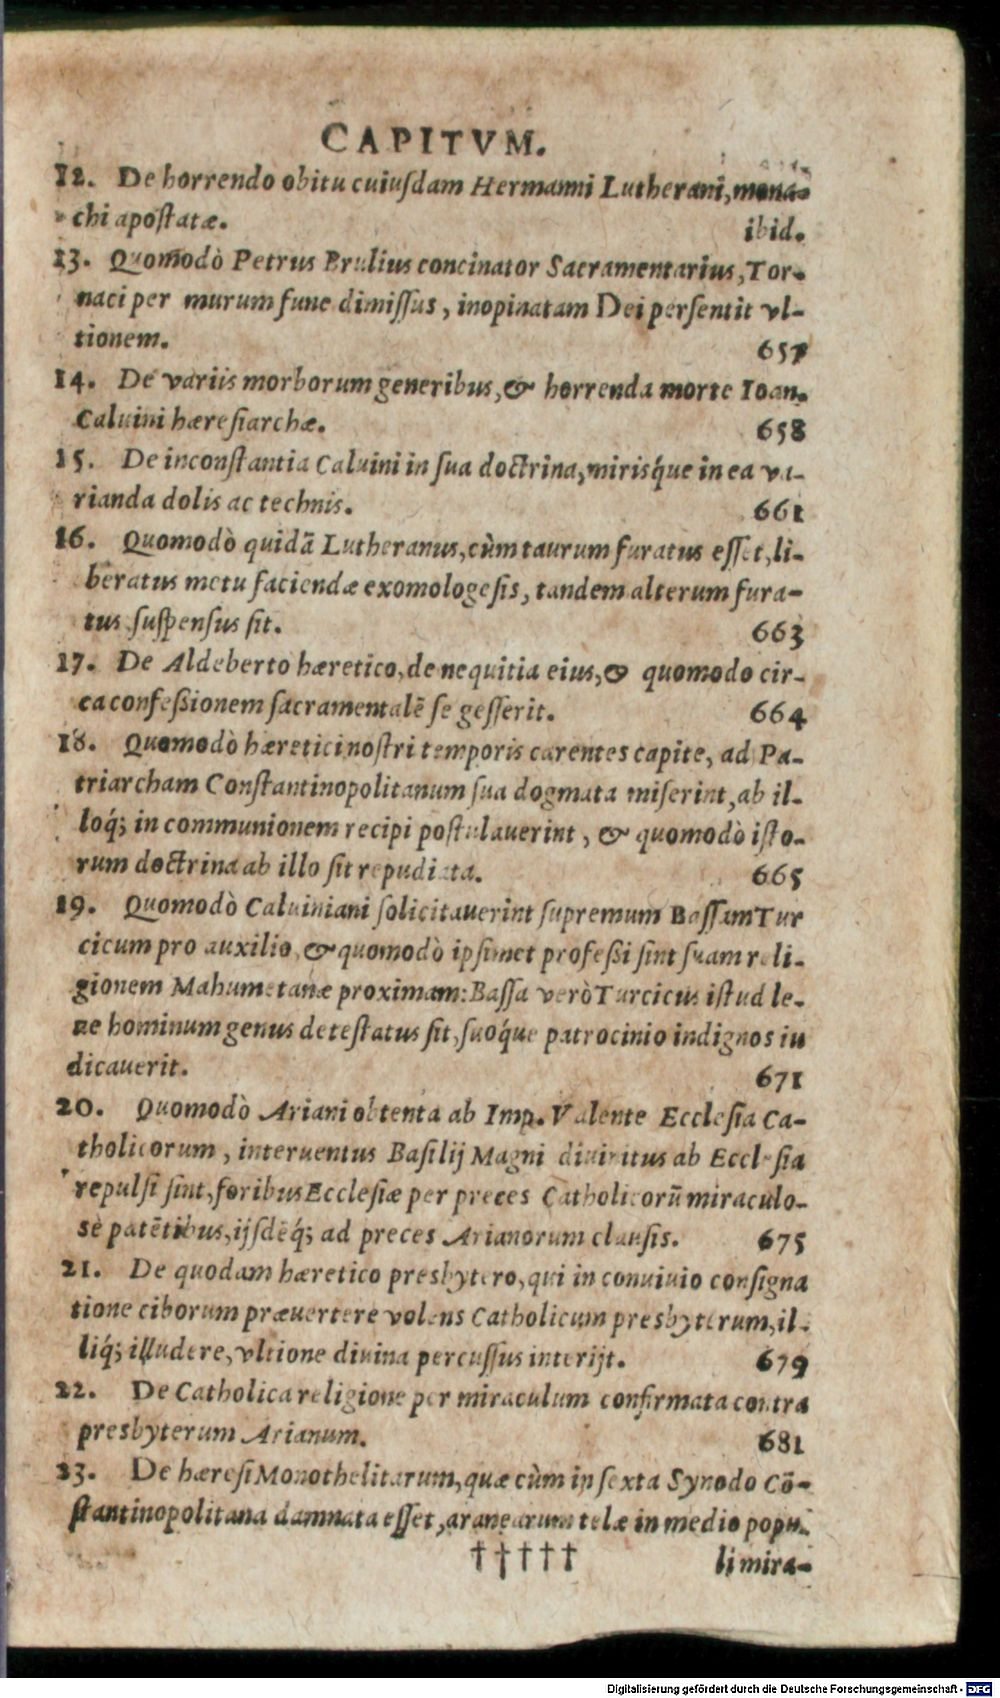 CAPITVM.
12. De horrendo obitu cuiuſdam Hermanni Lutherani, mona-
chi apoſtatæ. ibid.
13. Quomodò Petrus Brulius concinator Sacramentarius, Tor-
naci per murum fune dimiſſus, inopinatam Dei perſentit vl-
tionem. 657
14. De variis morborum generibus, & horrenda morte Ioan.
Caluini hæreſiarchæ. 658
15. De inconſtantia Caluini in ſua doctrina, mirisq́ue in ea va-
rianda dolis ac technis. 661
16. Quomodò quidā Lutheranus, cùm taurum furatus eſſet, li-
beratus metu faciendæ exomologeſis, tandem alterum fura-
tus ſuſpenſus ſit. 663
17. De Aldeberto hæretico, de nequitia eius, & quomodo cir-
ca confeſsionem ſacramentalē ſe geſſerit. 664
18. Quomodò hæretici noſtri temporis carentes capite, ad Pa-
triarcham Conſtantinopolitanum ſua dogmata miſerint, ab il-
loq́; in communionem recipi poſtulauerint, & quomodò iſto-
rum doctrina ab illo ſit repudiata. 665
19. Quomodò Caluiniani ſolicitauerint ſupremum Baſſam Tur
cicum pro auxilio, & quomodò ipſimet profeſsi ſint ſuam reli-
gionem Mahumetanæ proximam: Baſſa verò Turcicus iſtud le-
ne hominum genus deteſtatus ſit, ſuoq́ue patrocinio indignos iu
dicauerit. 671
20. Quomodò Ariani obtenta ab Imp. Valente Eccleſia Ca-
tholicorum, interuentus Baſilij Magni diuinitus ab Eccleſia
repulſi ſint, foribus Eccleſiæ per preces Catholicorū miraculo-
sè patētibus, ijſdēq́; ad preces Arianorum clauſis. 675
21. De quodam hæretico presbytero, qui in conuiuio conſigna
tione ciborum præuertere volens Catholicum presbyterum, il-
liq́; illudere, vltione diuina percuſſus interijt. 679
22. De Catholica religione per miraculum confirmata contra
presbyterum Arianum. 681
23. De hæreſi Monothelitarum, quæ cùm in ſexta Synodo Cō-
ſtantinopolitana damnata eſſet, aranearum telæ in medio popu-
† † † † † li mira-
Digitalisierung gefördert durch die Deutsche Forschungsgemeinschaft - DFG